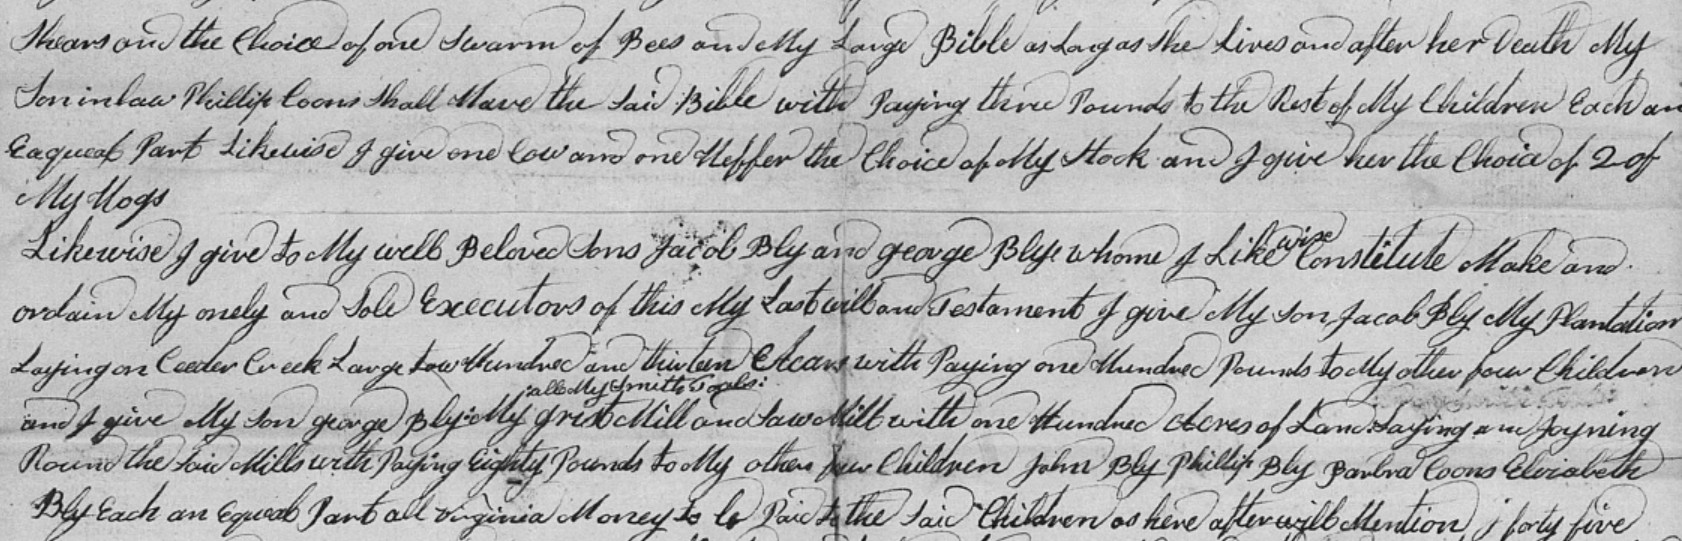 Shears and the Choice of one Swarm of Bees and My Large Bible as Long as She Lives and after her Death My
Son in law Phillip Coons Shall Have the Said Bible with Paying three Pounds to the Rest of My Children Each an
Eaqueal Part Likewise I give one Cow and one Heffer the Choice of My Stock and I give her the Choice of 2 of
My Hogs
Likewise I give to My well Beloved Sons Jacob Bly and george Bly whome I Likewise Constitute Make and
ordain My onely and Sole Executors of this My Last will and Testament I give My Son Jacob Bly My Plantation
Laying on Ceeder Creek Large tow Hundred and thirteen Acars with Paying one Hundred Pounds to My other four Children
:alls My Smitts Tools:
and I give My Son george Bly My grist Mill and Saw Mill with one Hundred Acres of Land Laying and Joyning
Round the Said Mills with Paying Eighty Pounds to My other four Children John Bly Phillip Bly Barbra Coons Elizabeth
Bly Each an Equeal Part all Virginia Money to be Paid to the Said Children as here after will Mention forty five